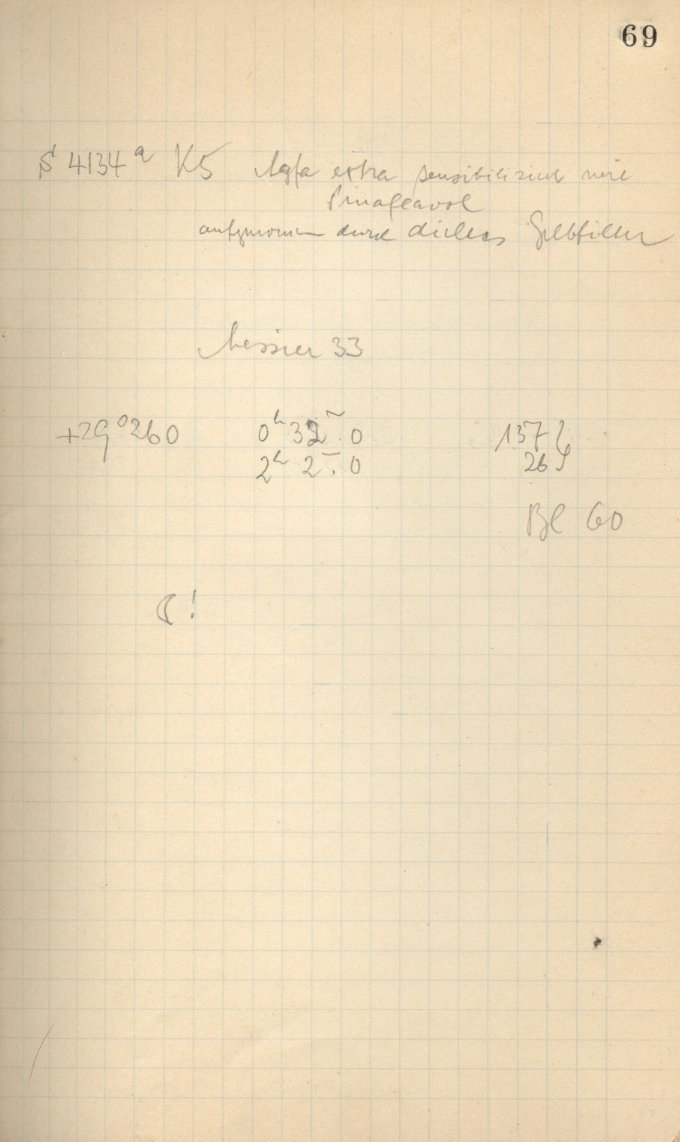 69
S 4134 a K5 Agfa extra sensibilisiert mit
Pinaflavol
aufgenommen durch dickes Gelbfilter
Messier 33
+29°260 0h 32m.0 157
2h 2m.0 26
Bl 60
☾ !